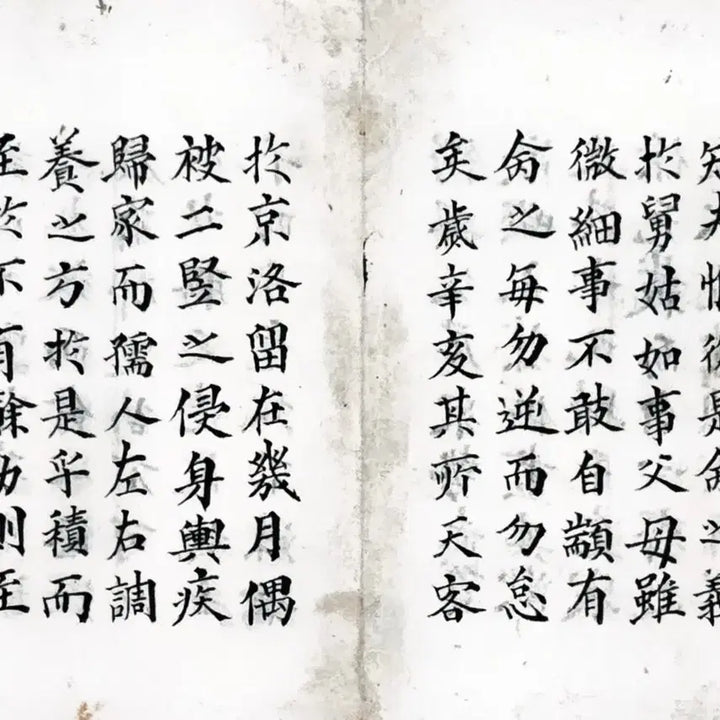 是命之義
於舅姑如事父母雖
微細事不敢自顓有
命之每勿逆而勿怠
矣歲辛亥其所天客
於京洛留在幾月偶
被二竪之侵身輿疾
歸家而孺人左右調
養之方於是乎積而
至於不有餘功則至